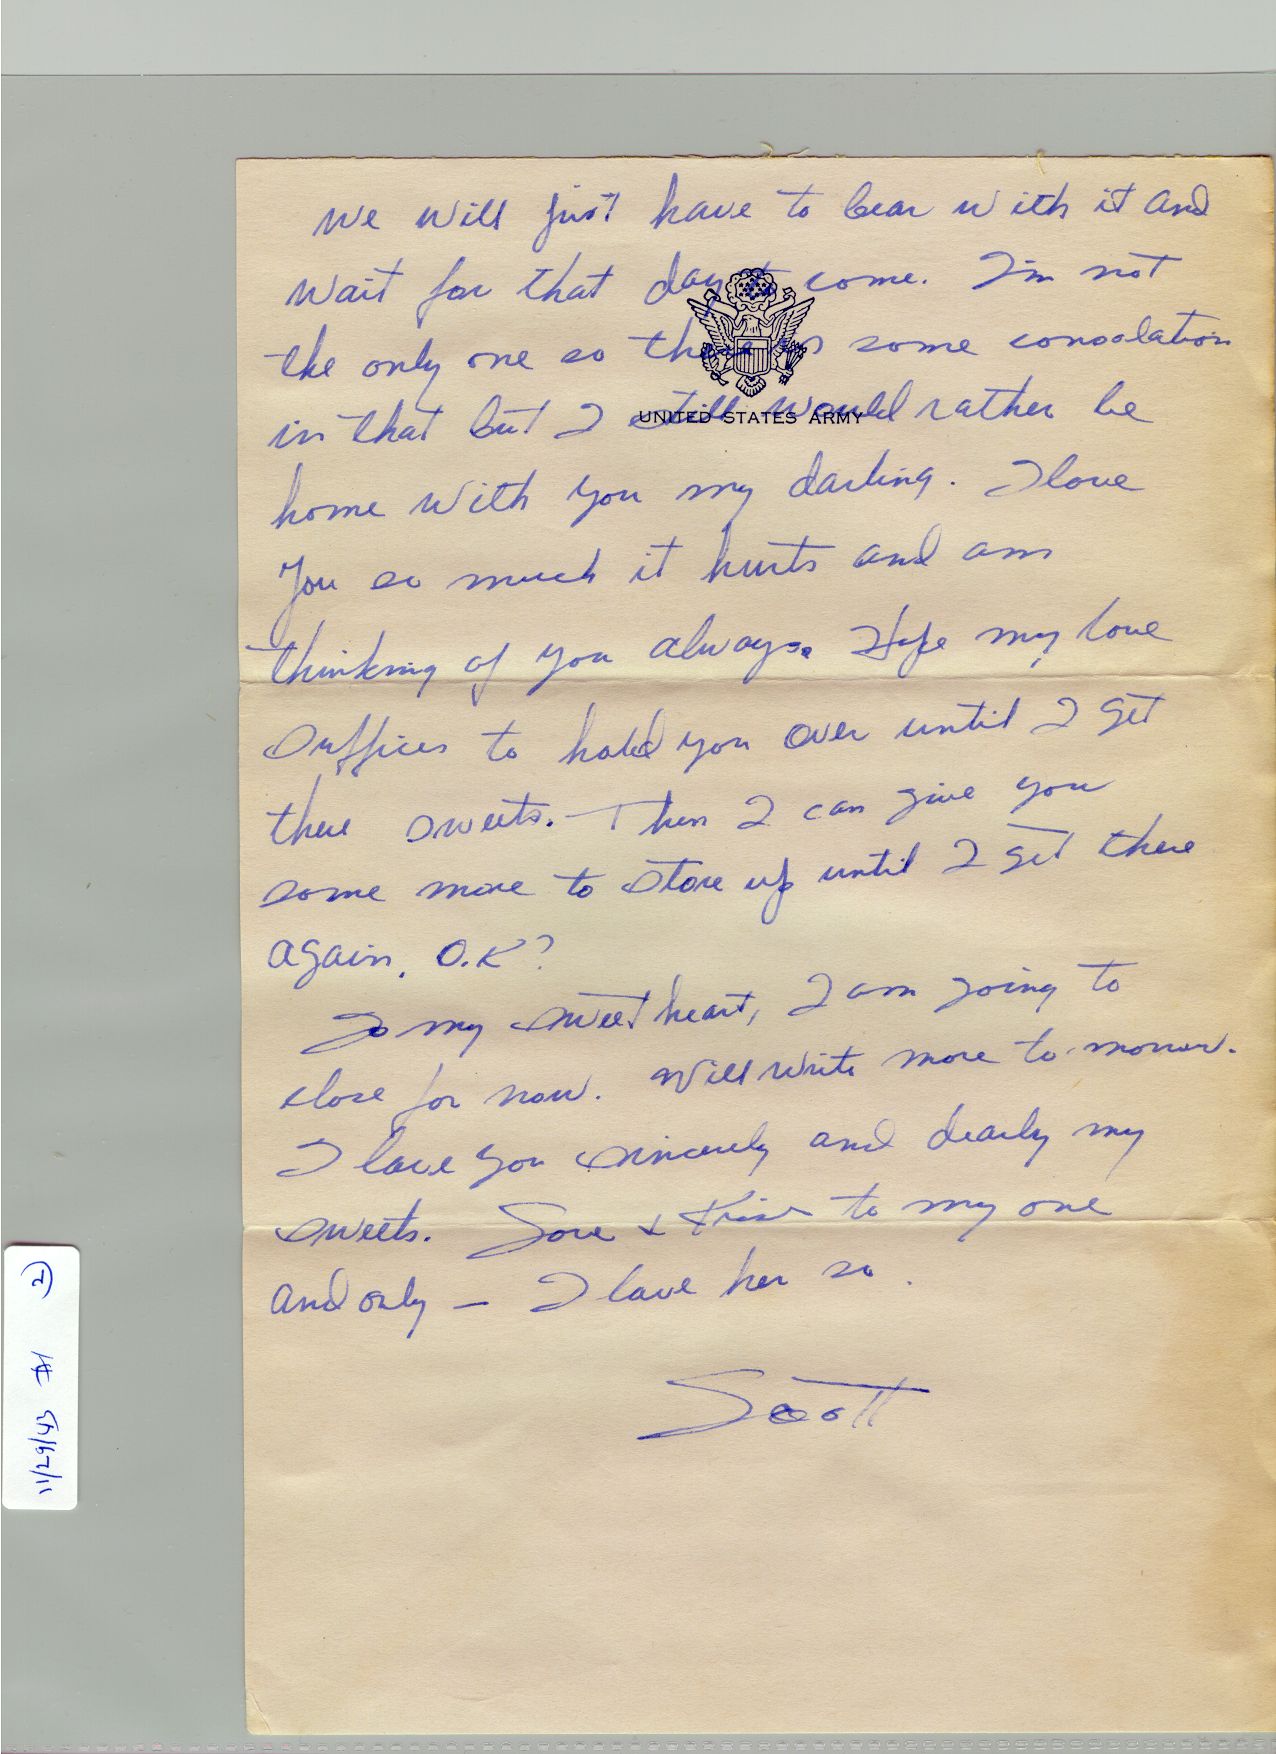 we will just have to bear with it and
wait for that day to come. I'm not
the only one so there is some consolation
in that but I still would rather be
UNITED STATES ARMY
home with you my darling. I love
you so much it hurts and am
thinking of you always. Hope my love
suffices to hold you over until I get
there sweets. Then I can give you
some more to store up until I get there
again, O.K?
So my sweetheart, I am going to
close for now. Will write more to-morrow.
I love you sincerely and dearly my
sweets. Love & Kisses to my one
and only — I love her so.
Scott
11/29/43 #1 2)